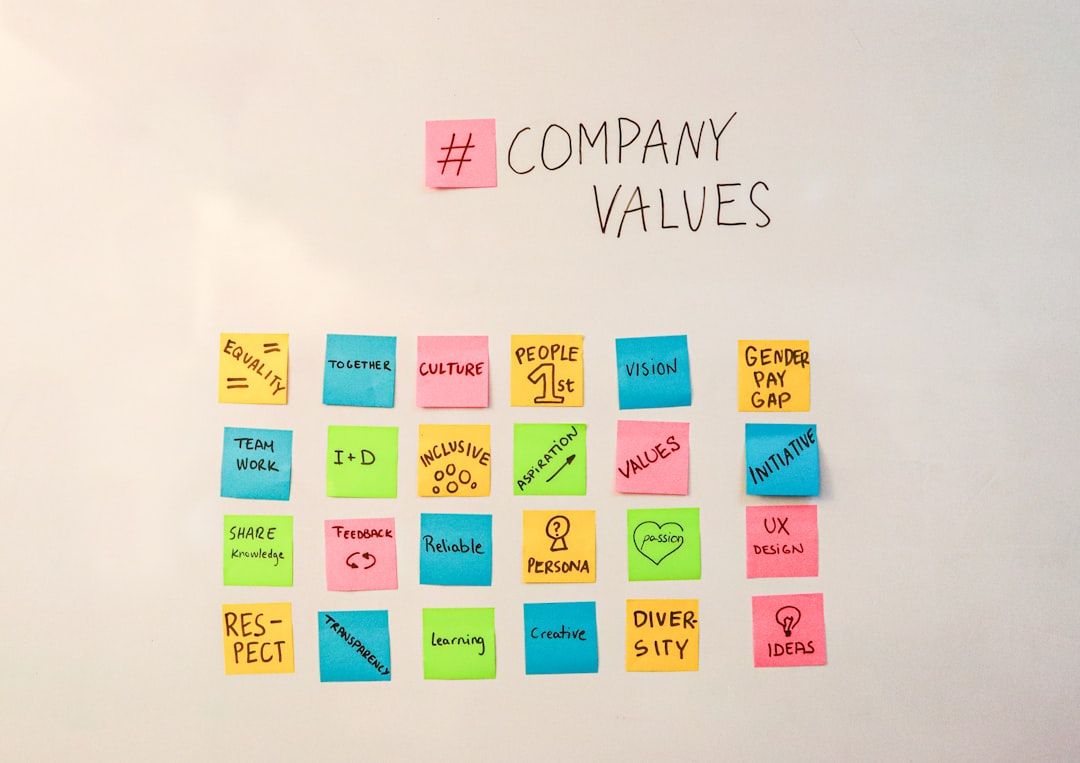 # COMPANY
VALUES
EQUALITY
TOGETHER
CULTURE
PEOPLE
1st
VISION
GENDER
PAY
GAP
TEAM
WORK
I+D
INCLUSIVE
ASPIRATION
VALUES
INITIATIVE
SHARE
Knowledge
FEEDBACK
Reliable
?
PERSONA
passion
UX
DESIGN
RES-
PECT
TRANSPARENCY
Learning
Creative
DIVER-
SITY
IDEAS